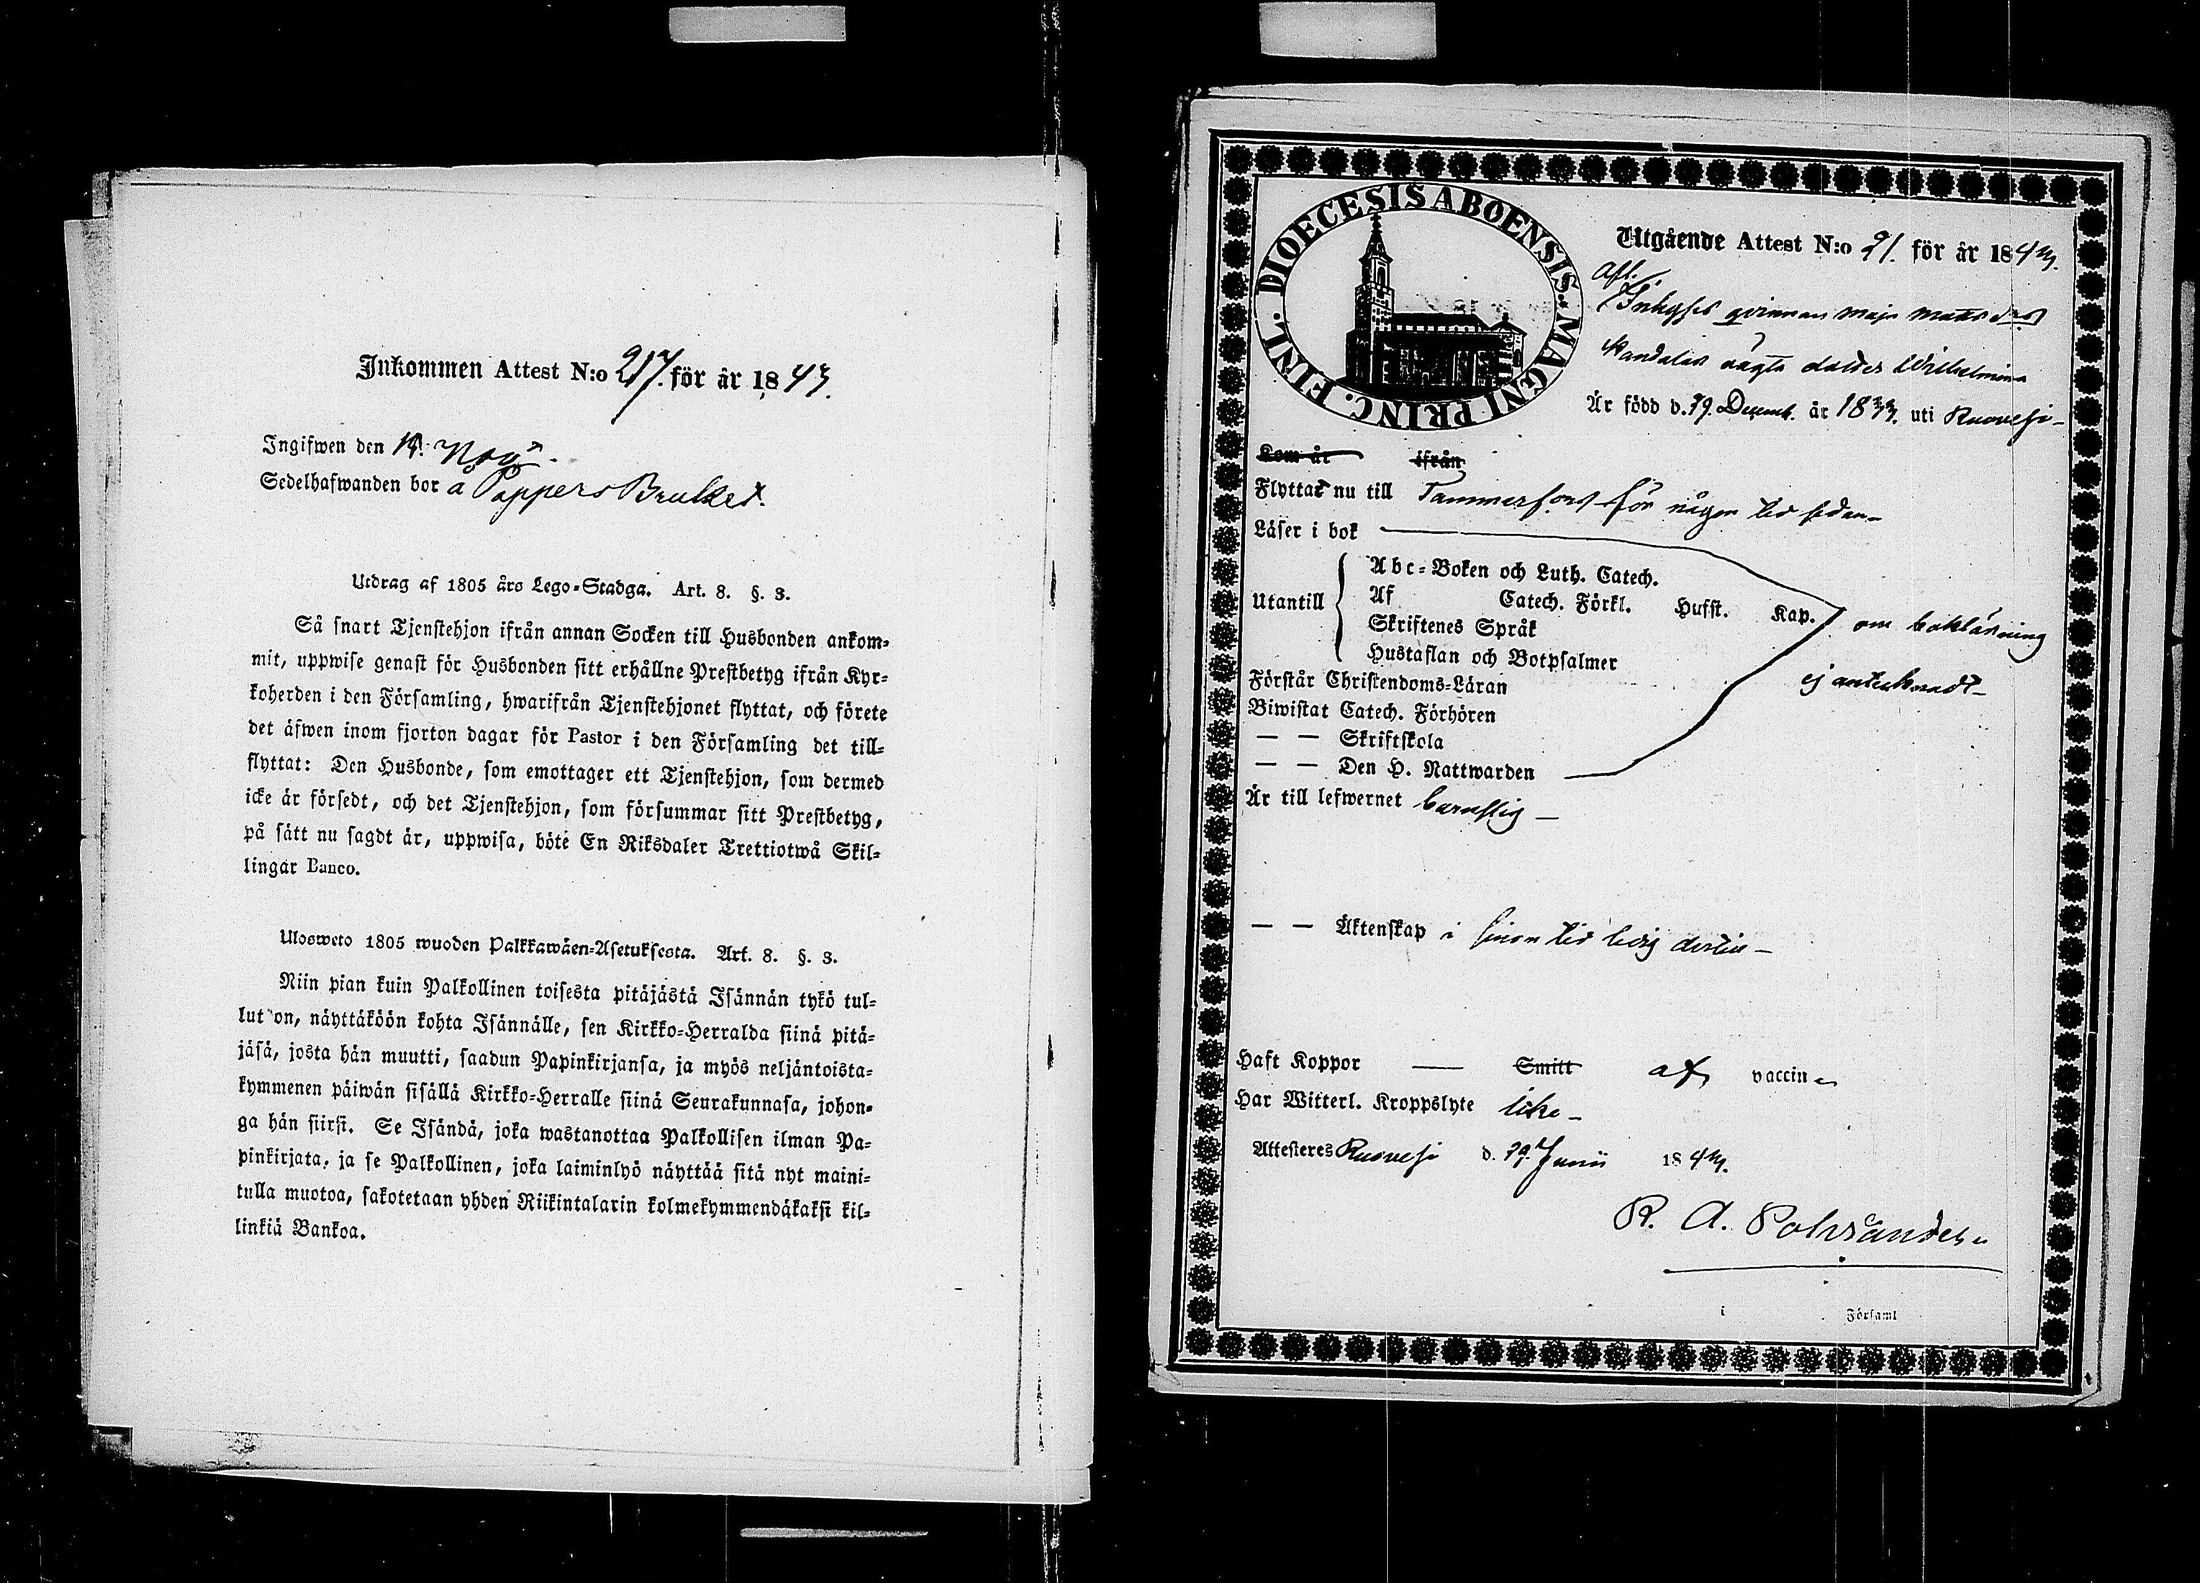 Inkommen Attest N:o 217. för år 1843.
Ingifwen den 14 Nov.
Sedelhafwanden bor å Pappers Bruket.
Utdrag af 1805 års Lego-Stadga. Art. 8. §. 3.
Så snart Tjenstehjon ifrån annan Socken till Husbonden ankom-
mit, uppwise genast för Husbonden sitt erhållne Prestbetyg ifrån Kyr-
koherden i den Församling, hwarifrån Tjenstehjonet flyttat, och förete
det äfwen inom fjorton dagar för Pastor i den Församling det till-
flyttat: Den Husbonde, som emottager ett Tjenstehjon, som dermed
icke är försedt, och det Tjenstehjon, som försummar sitt Prestbetyg,
på sätt nu sagdt är, uppwisa, böte En Riksdaler Trettiotwå Skil-
lingar Banco.
Ulosweto 1805 wuoden Palkkawäen-Asetuksesta. Art. 8. §. 3.
Niin pian kuin Palkollinen toisesta pitäjästä Isännän tykö tul-
lut on, näyttäköön kohta Isännälle, sen Kirkko-Herralda siinä pitä-
jäsä, josta hän muutti, saadun Papinkirjansa, ja myös neljäntoista-
kymmenen päiwän sisällä Kirkko-Herralle siinä Seurakunnasa, johon-
ga hän siirsi. Se Isändä, joka wastanottaa Palkollisen ilman Pa-
pinkirjata, ja se Palkollinen, joka laiminlyö näyttää sitä nyt maini-
tulla muotoa, sakotetaan yhden Riikintalarin kolmekymmendäkaksi kil-
linkiä Bankoa.
DIOECESIS ABOENSIS. MAGNI PRINC. FINL.
Utgående Attest N:o 91. för år 1843.
Afl.
Inhyses qvinnan Maja Matts dr
oägta dotter Wilhelmina
Är född d. 19. Decemb. år 1833. uti Ruovesi
Kom år ifrån
Flyttar nu till Tammerfors för någon tid sedan
Läser i bok
Utantill
Abc-Boken och Luth. Catech.
Af Catech. Förkl. Husst. Kap.
Skriftenes Språk
Hustaflan och Botpsalmer
om bokläsning
ej antecknadt
Förstår Christendoms-Läran
Biwistat Catech. Förhören
— — Skriftskola
— — Den H. Nattwarden
Är till lefwernet barnslig
— — Äktenskap i sinom tid ledig dertill
Haft Koppor — Smitt af vaccin
Har Witterl. Kroppslyte icke
Attesteres Ruovesi d. 19. Junii 1843.
R. A.
i Församl